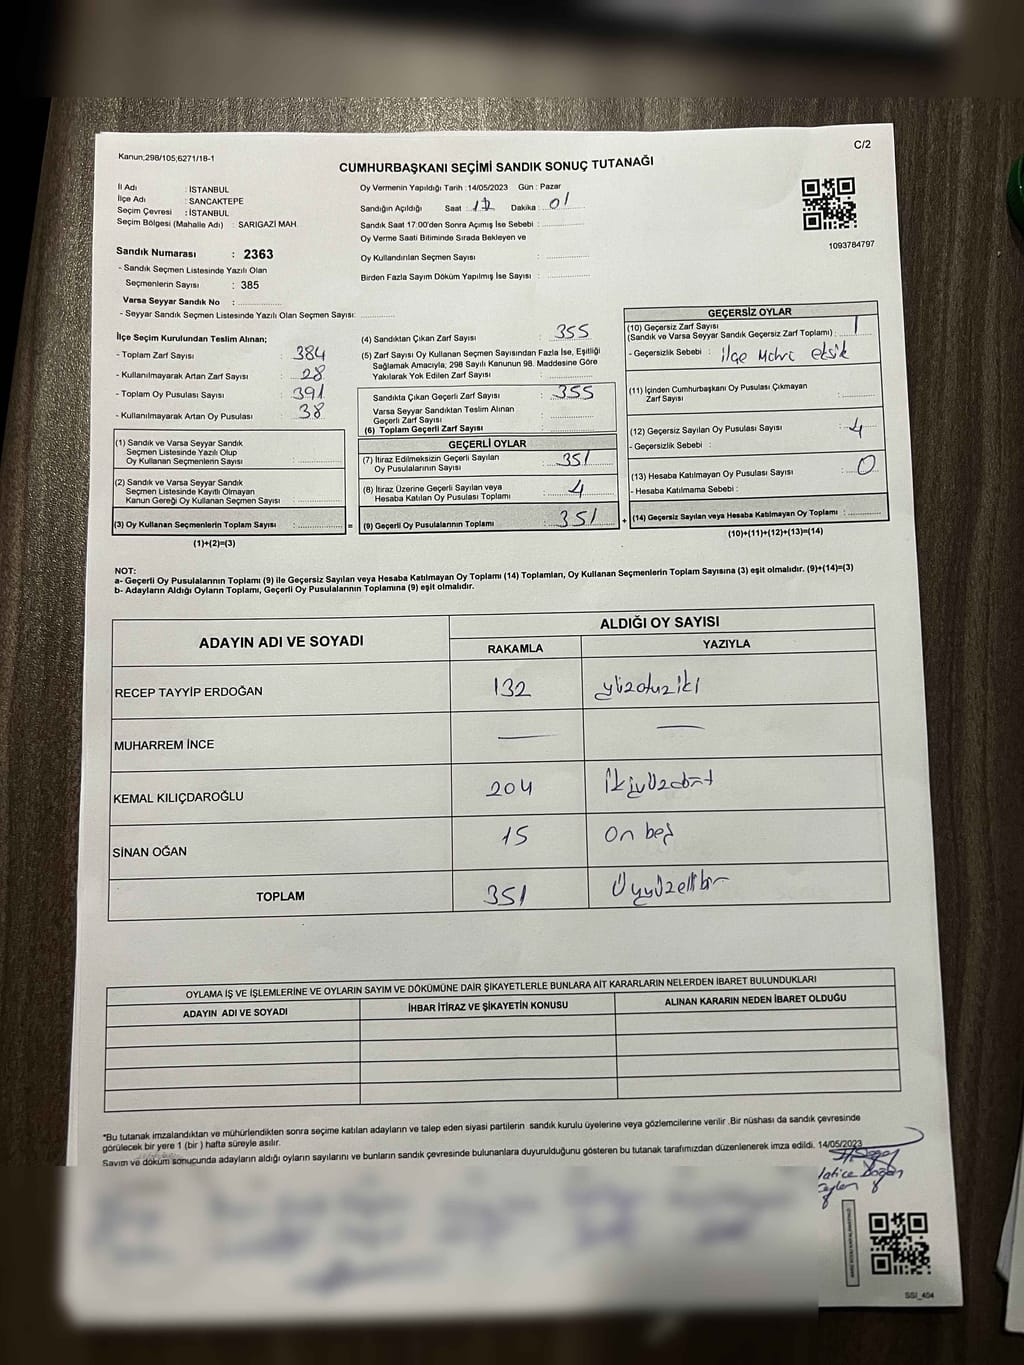 Kanun,298/105,6271/18-1
C/2
CUMHURBAŞKANI SEÇİMİ SANDIK SONUÇ TUTANAĞI
İl Adı : İSTANBUL
İlçe Adı : SANCAKTEPE
Seçim Çevresi : İSTANBUL
Seçim Bölgesi (Mahalle Adı) : SARIGAZİ MAH
Sandık Numarası : 2363
- Sandık Seçmen Listesinde Yazılı Olan
Seçmenlerin Sayısı : 385
Varsa Seyyar Sandık No :
- Seyyar Sandık Seçmen Listesinde Yazılı Olan Seçmen Sayısı:
Oy Vermenin Yapıldığı Tarih : 14/05/2023 Gün : Pazar
Sandığın Açıldığı Saat : Dakika : 01
Sandık Saat 17:00'den Sonra Açımış İse Sebebi :
Oy Verme Saati Bitiminde Sırada Bekleyen ve
Oy Kullandırılan Seçmen Sayısı :
Birden Fazla Sayım Döküm Yapılmış İse Sayısı :
1093784797
İlçe Seçim Kurulundan Teslim Alınan;
- Toplam Zarf Sayısı : 384
- Kullanılmayarak Artan Zarf Sayısı : 28
- Toplam Oy Pusulası Sayısı : 391
- Kullanılmayarak Artan Oy Pusulası : 38
(1) Sandık ve Varsa Seyyar Sandık
Seçmen Listesinde Yazılı Olup
Oy Kullanan Seçmenlerin Sayısı :
(2) Sandık ve Varsa Seyyar Sandık
Seçmen Listesinde Kayıtlı Olmayan
Kanun Gereği Oy Kullanan Seçmen Sayısı :
(3) Oy Kullanan Seçmenlerin Toplam Sayısı :
(1)+(2)=(3)
=
(4) Sandıktan Çıkan Zarf Sayısı : 355
(5) Zarf Sayısı Oy Kullanan Seçmen Sayısından Fazla İse, Eşitliği
Sağlamak Amacıyla; 298 Sayılı Kanunun 98. Maddesine Göre
Yakılarak Yok Edilen Zarf Sayısı :
Sandıkta Çıkan Geçerli Zarf Sayısı : 355
Varsa Seyyar Sandıktan Teslim Alınan
Geçerli Zarf Sayısı :
(6) Toplam Geçerli Zarf Sayısı :
GEÇERLİ OYLAR
(7) İtiraz Edilmeksizin Geçerli Sayılan
Oy Pusulalarının Sayısı : 351
(8) İtiraz Üzerine Geçerli Sayılan veya
Hesaba Katılan Oy Pusulası Toplamı : 4
(9) Geçerli Oy Pusulalarının Toplamı : 351
+
GEÇERSİZ OYLAR
(10) Geçersiz Zarf Sayısı
(Sandık ve Varsa Seyyar Sandık Geçersiz Zarf Toplamı) : 1
- Geçersizlik Sebebi : ilçe Mührü eksik
(11) İçinden Cumhurbaşkanı Oy Pusulası Çıkmayan
Zarf Sayısı :
(12) Geçersiz Sayılan Oy Pusulası Sayısı : 4
- Geçersizlik Sebebi :
(13) Hesaba Katılmayan Oy Pusulası Sayısı : 0
- Hesaba Katılmama Sebebi :
(14) Geçersiz Sayılan veya Hesaba Katılmayan Oy Toplamı :
(10)+(11)+(12)+(13)=(14)
NOT:
a- Geçerli Oy Pusulalarının Toplamı (9) ile Geçersiz Sayılan veya Hesaba Katılmayan Oy Toplamı (14) Toplamları, Oy Kullanan Seçmenlerin Toplam Sayısına (3) eşit olmalıdır. (9)+(14)=(3)
b- Adayların Aldığı Oyların Toplamı, Geçerli Oy Pusulalarının Toplamına (9) eşit olmalıdır.
ADAYIN ADI VE SOYADI
ALDIĞI OY SAYISI
RAKAMLA YAZIYLA
RECEP TAYYİP ERDOĞAN 132 yüzotuziki
MUHARREM İNCE — —
KEMAL KILIÇDAROĞLU 204 İkiyüzdört
SİNAN OĞAN 15 On beş
TOPLAM 351 Üçyüzellibir
OYLAMA İŞ VE İŞLEMLERİNE VE OYLARIN SAYIM VE DÖKÜMÜNE DAİR ŞİKAYETLERLE BUNLARA AİT KARARLARIN NELERDEN İBARET BULUNDUKLARI
ADAYIN ADI VE SOYADI İHBAR İTİRAZ VE ŞİKAYETİN KONUSU ALINAN KARARIN NEDEN İBARET OLDUĞU
*Bu tutanak imzalandıktan ve mühürlendikten sonra seçime katılan adayların ve talep eden siyasi partilerin sandık kurulu üyelerine veya gözlemcilerine verilir .Bir nüshası da sandık çevresinde
görülecek bir yere 1 (bir ) hafta süreyle asılır.
Sayım ve döküm sonucunda adayların aldığı oyların sayılarını ve bunların sandık çevresinde bulunanlara duyurulduğunu gösteren bu tutanak tarafımızdan düzenlenerek imza edildi. 14/05/2023
SSI_404